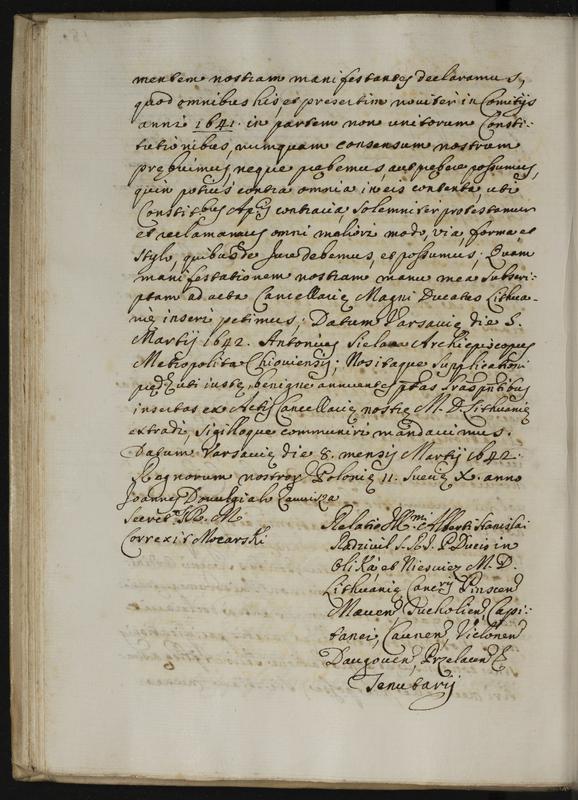 mentem nostram manifestantes declaramus,
quod omnibus his, et presertim noviter in Comitijs
anni 1641. in partem non unitorum Consti-
tutionibus, numquam consensum nostrum
prębuimus, neque prębemus, aut pręberę possumus,
quin potius contra omnia in eis contenta, uti
Constit.bus contraria, solemniter protestamur
et reclamamus omni meliori modo, via, forma, et
stylo, quibus de Jure debemus, et possumus; Quam
manifestationem nostram manu mea subscri-
ptam ad acta Cancellarię Magni Ducatus Lithua-
nię inseri petimus; Datum Varsavię die 5.
Martij 1642. Antonius Sielawa Archiepiscopus
Metropolita Chioviensis; Nos itaque supplicationi
uti iustę, benigne annuentes
insertas ex Actis Cancellarię nostrę M. D. Lithuanię
extradi, sigilloque communiri mandavimus.
Datum Varsavię die 8. mensis Martij 1642.
Regnorum nostror. Polonię 11. Suecię X. anno
Joannes Dowelgialo Zawisza
Secret. M.
Correxit Mocarski
Relatio Ill.mi Alberti Stanislai
Radzivil S. R. I. P. Ducis in
Olika et Niesviez M. D.
Lithuanię Canc.rij Pinscen
Tucholien, Capi-
tanei, Caunen, Vielonen
Tenutarij